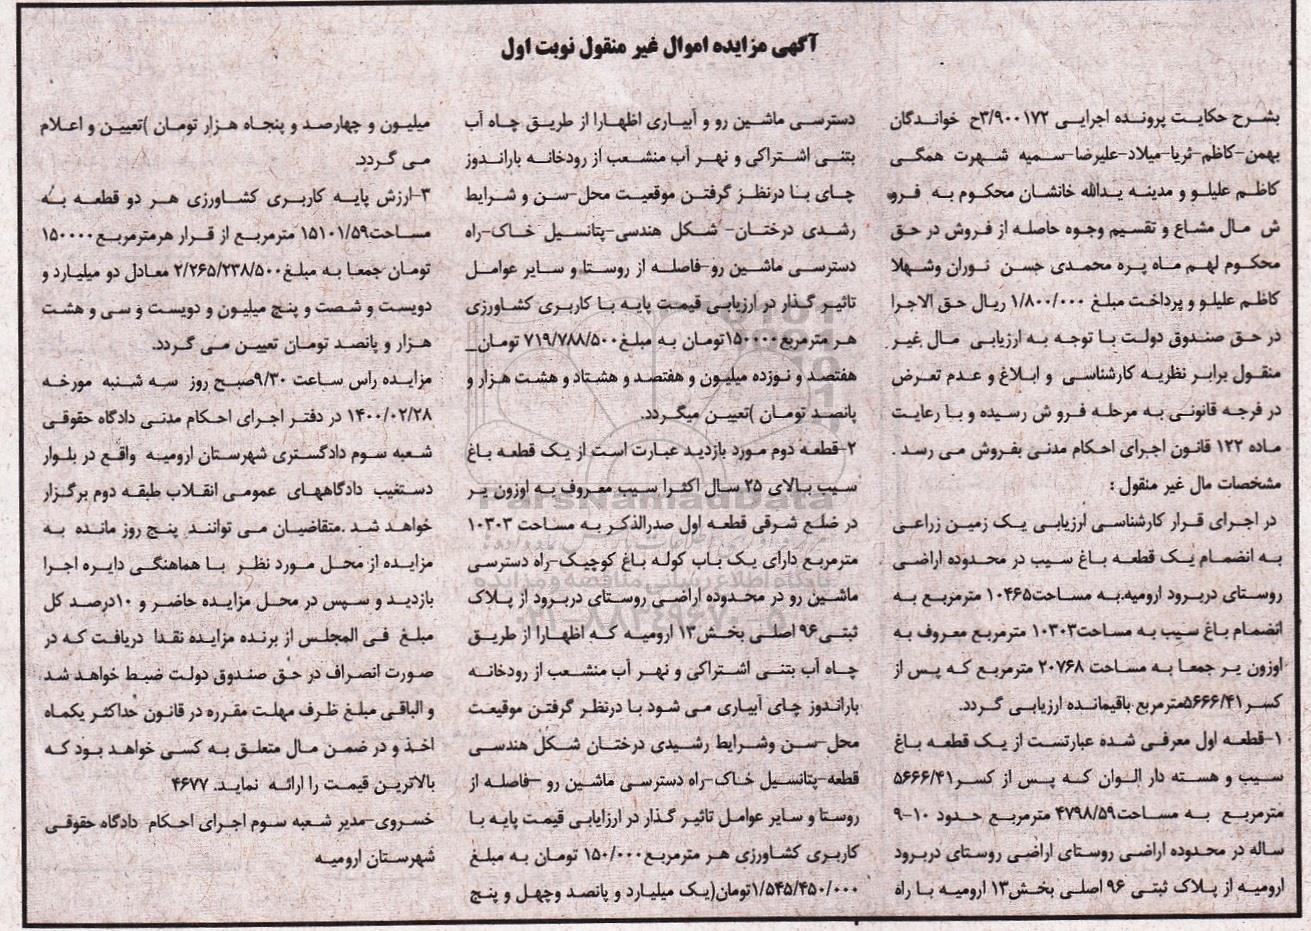 آگهی مزایده اموال غیر منقول نوبت اول
بشرح حکایت پرونده اجرایی ۳/۹۰۰۱۷۲ح خواندگان
بهمن-کاظم-ثریا-میلاد-علیرضا-سمیه شهرت همگی
کاظم علیلو و مدینه یدالله خانشان محکوم به فرو
ش مال مشاع و تقسیم وجوه حاصله از فروش در حق
محکوم لهم ماه پره محمدی جسن نوران وشهلا
کاظم علیلو و پرداخت مبلغ ۱/۸۰۰/۰۰۰ ریال حق الاجرا
در حق صندوق دولت با توجه به ارزیابی مال غیر
منقول برابر نظریه کارشناسی و ابلاغ و عدم تعرض
در فرجه قانونی به مرحله فرو ش رسیده و با رعایت
ماده ۱۲۲ قانون اجرای احکام مدنی بفروش می رسد .
مشخصات مال غیر منقول :
در اجرای قرار کارشناسی ارزیابی یک زمین زراعی
به انضمام یک قطعه باغ سیب در محدوده اراضی
روستای دربرود ارومیه.به مساحت۱۰۴۶۵ مترمربع به
انضمام باغ سیب به مساحت۱۰۳۰۳ مترمربع معروف به
اوزون یر جمعا به مساحت ۲۰۷۶۸ مترمربع که پس از
کسر ۵۶۶۶/۴۱مترمربع باقیمانده ارزیابی گردد.
۱-قطعه اول معرفی شده عبارتست از یک قطعه باغ
سیب و هسته دار الوان که پس از کسر۵۶۶۶/۴۱
مترمربع به مساحت۴۷۹۸/۵۹ مترمربع حدود ۱۰-۹
ساله در محدوده اراضی روستای اراضی روستای دربرود
ارومیه از پلاک ثبتی ۹۶ اصلی بخش۱۳ ارومیه با راه
دسترسی ماشین رو و آبیاری اظهارا از طریق چاه آب
بتنی اشتراکی و نهر آب منشعب از رودخانه باراندوز
چای با درنظر گرفتن موقعیت محل-سن و شرایط
رشدی درختان- شکل هندسی-پتانسیل خاک-راه
دسترسی ماشین رو-فاصله از روستا و سایر عوامل
تاثیر گذار در ارزیابی قیمت پایه با کاربری کشاورزی
هر مترمربع۱۵۰۰۰۰تومان به مبلغ۷۱۹/۷۸۸/۵۰۰ تومان_
هفتصد و نوزده میلیون و هفتصد و هشتاد و هشت هزار و
پانصد تومان )تعیین میگردد.
۲-قطعه دوم مورد بازدید عبارت است از یک قطعه باغ
سیب بالای ۲۵ سال اکثرا سیب معروف به اوزون یر
در ضلع شرقی قطعه اول صدرالذکر به مساحت ۱۰۳۰۳
مترمربع دارای یک باب کوله باغ کوچیک-راه دسترسی
ماشین رو در محدوده اراضی روستای دربرود از پلاک
ثبتی۹۶ اصلی بخش۱۳ ارومیه که اظهارا از طریق
چاه آب بتنی اشتراکی و نهر آب منشعب از رودخانه
باراندوز چای آبیاری می شود با درنظر گرفتن موقعیت
محل-سن وشرایط رشیدی درختان شکل هندسی
قطعه-پتانسیل خاک-راه دسترسی ماشین رو –فاصله از
روستا و سایر عوامل تاثیر گذار در ارزایابی قیمت پایه با
کاربری کشاورزی هر مترمربع۱۵۰/۰۰۰ تومان به مبلغ
۱/۵۴۵/۴۵۰/۰۰۰تومان(یک میلیارد و پانصد وچهل و پنج
میلیون و چهارصد و پنجاه هزار تومان )تعیین و اعلام
می گردد.
۳-ارزش پایه کاربری کشاورزی هر دو قطعه به
مساحت۱۵۱۰۱/۵۹ مترمربع از قرار هرمترمربع۱۵۰۰۰۰
تومان جمعا به مبلغ۲/۲۶۵/۲۳۸/۵۰۰ معادل دو میلیارد و
دویست و شصت و پنج میلیون و دویست و سی و هشت
هزار و پانصد تومان تعیین می گردد.
مزایده راس ساعت ۹/۳۰صبح روز سه شنبه مورخه
۱۴۰۰/۰۲/۲۸ در دفتر اجرای احکام مدنی دادگاه حقوقی
شعبه سوم دادگستری شهرستان ارومیه واقع در بلوار
دستغیب دادگاههای عمومی انقلاب طبقه دوم برگزار
خواهد شد .متقاضیان می توانند پنج روز مانده به
مزایده از محل مورد نظر با هماهنگی دایره اجرا
بازدید و سپس در محل مزایده حاضر و ۱۰درصد کل
مبلغ فی المجلس از برنده مزایده نقدا دریافت که در
صورت انصراف در حق صندوق دولت ضبط خواهد شد
و الباقی مبلغ ظرف مهلت مقرره در قانون حداکثر یکماه
اخذ و در ضمن مال متعلق به کسی خواهد بود که
بالاترین قیمت را ارائه نماید. ۴۶۷۷
خسروی-مدیر شعبه سوم اجرای احکام دادگاه حقوقی
شهرستان ارومیه
ParsNamadData
پایگاه اطلاع رسانی مناقصه و مزایده